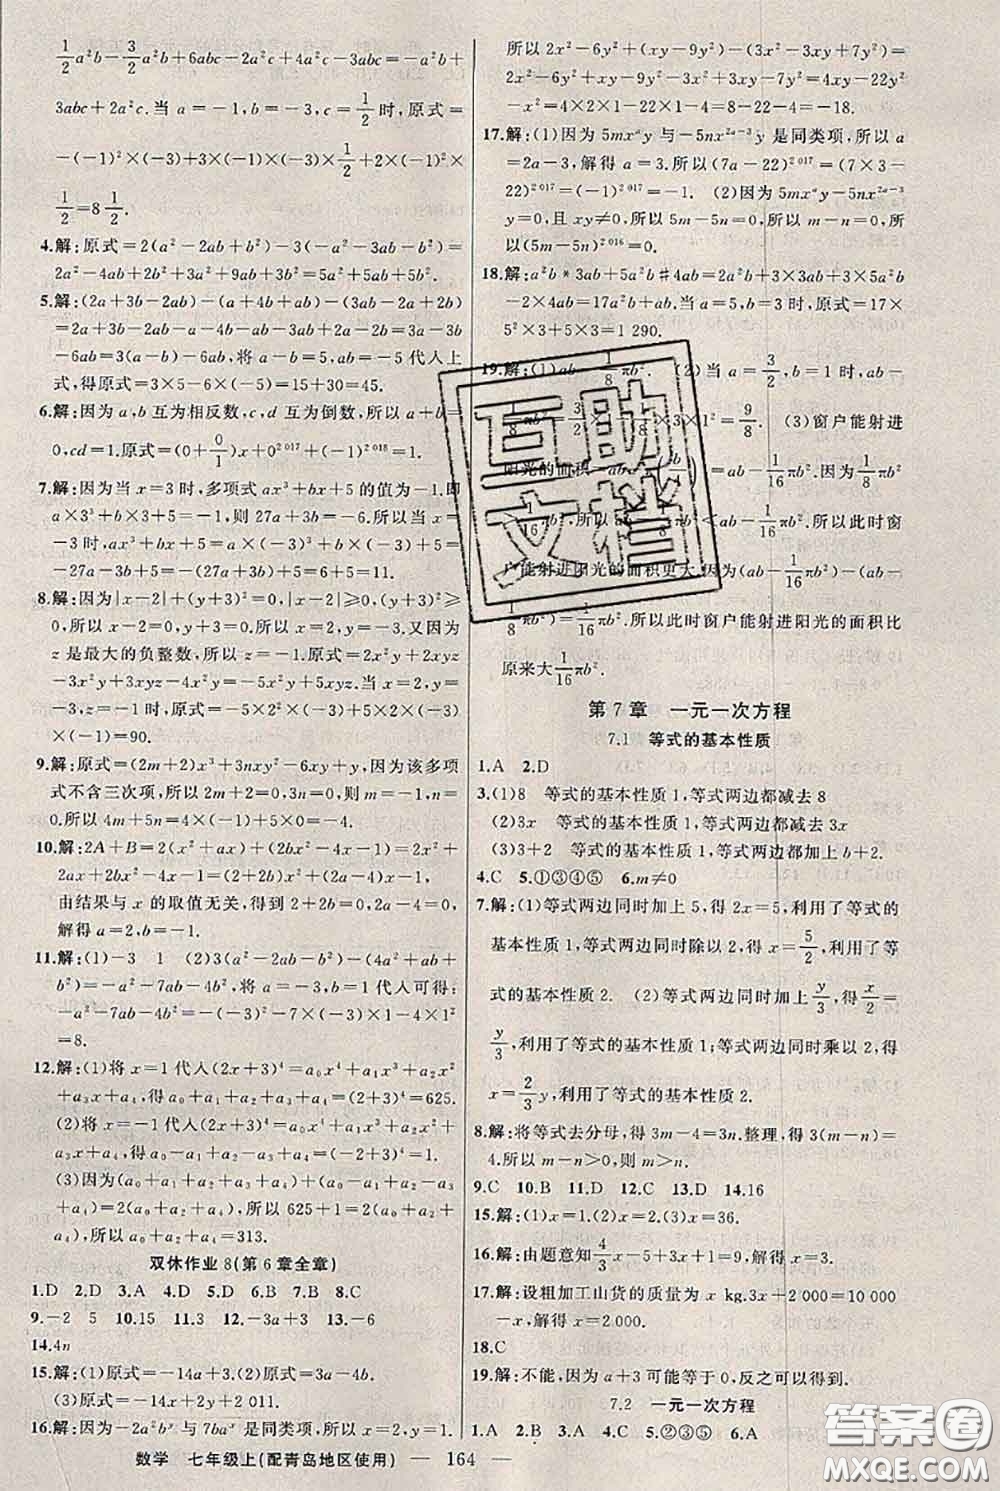 1/2a²b-3/2a²b+6abc-2a²c+4a²c-3abc=-a²b+
3abc+2a²c.当a=-1,b=-3,c=1/2时,原式=
-(-1)²×(-3)+3×(-1)×(-3)×1/2+2×(-1)²×
1/2=8 1/2.
4.解:原式=2(a²-2ab+b²)-3(-a²-3ab-b²)=
2a²-4ab+2b²+3a²+9ab+3b²=5a²+5ab+5b².
5.解:(2a+3b-2ab)-(a+4b+ab)-(3ab+2b-2a)
=2a+3b-2ab-a-4b-ab-3ab-2b+2a=3a-3b-
6ab=3(a-b)-6ab,将a-b=5,ab=-5代入上
式,得原式=3×5-6×(-5)=15+30=45.
6.解:因为a,b互为相反数,c,d互为倒数,所以a+b=
0,cd=1.原式=(0+0/1)×3²⁰¹⁷-1²⁰¹⁸=-1.
7.解:因为当x=3时,多项式ax³+bx+5的值为-1.即
a×3³+b×3+5=-1,则27a+3b=-6.所以当x=
-3时,ax³+bx+5=a×(-3)³+b×(-3)+5=
-27a-3b+5=-(27a+3b)+5=-(-6)+5=11.
8.解:因为|x-2|+(y+3)²=0,|x-2|≥0,(y+3)²≥
0,所以x-2=0,y+3=0.所以x=2,y=-3.又因为
z是最大的负整数,所以z=-1.原式=2x²y+x²y-
3x²y+5xyz=(2+1-3)x²y+5xyz=5xyz.当x=2,y=
-3,z=-1时,原式=5xyz=5×2×(-3)×(-1)=90.
9.解:原式=(2m+2)x³+3nxy²-6xy+y,因为该多项
式不含三次项,所以2m+2=0,3n=0,解得m=-1,n=
0.所以4m+5n=4×(-1)+5×0=-4.
10.解:2A+B=2(x²+ax)+(2bx²-4x-1)=2x²+
2ax+2bx²-4x-1=(2+2b)x²+(2a-4)x-1,
由结果与x的取值无关,得到2+2b=0,2a-4=0,
解得a=2,b=-1.
11.解:(1)-3 1 (2)3(a²-2ab-b²)-(4a²+ab+
b²)=-a²-7ab-4b²,将a=-3,b=1代入可得:
-a²-7ab-4b²=-(-3)²-7×(-3)×1-4×1²
=8.
12.解:(1)将x=1代入(2x+3)⁴=a₀x⁴+a₁x³+a₂x²
+a₃x+a₄,得a₀+a₁+a₂+a₃+a₄=(2+3)⁴=625.
(2)将x=-1代入(2x+3)⁴=a₀x⁴+a₁x³+a₂x²+
a₃x+a₄,得a₀-a₁+a₂-a₃+a₄=(-2+3)⁴=1.
(3)因为(a₀+a₁+a₂+a₃+a₄)+(a₀-a₁+a₂-a₃
+a₄)=2(a₀+a₂+a₄),所以625+1=2(a₀+a₂
+a₄),所以a₀+a₂+a₄=313.
双休作业8(第6章全章)
1.D 2.D 3.A 4.D 5.D 6.B 7.B 8.C
9.-2 5 10.15 11.3 12.-3a+3 13.-6
14.4n
15.解:(1)原式=-14+3.(2)原式=3a-4b.
(3)原式=-14y+2x+2 011.
16.解:因为-2a²bˣ与7baʸ是同类项,所以x=1,y=2,
所以2x²-6y²+(xy-9y²)-(3x²-3xy+7y²)=
2x²-6y²+xy-9y²-3x²+3xy-7y²=4xy-22y²
-x²=4×2×1-22×4-1=-18.
17.解:(1)因为5mxᵃy与-5nx²ᵃ⁻³y是同类项,所以a
=2a-3,解得a=3.所以(7a-22)²⁰¹⁷=(7×3-
22)²⁰¹⁷=(-1)²⁰¹⁷=-1. (2)因为5mxᵃy-5nx²ᵃ⁻³
y=0,且xy≠0,所以5m-5n=0,所以m-n=0,所
以(5m-5n)²⁰¹⁶=0.
18.解:a²b*3ab+5a²b#4ab=2a²b+3×3ab+3×5a²b
-2×4ab=17a²b+ab,当a=5,b=3时,原式=17×
5²×3+5×3=1 290.
19.解:(1)ab-1/8πb². (2)当a=3/2,b=1时,ab-
1/8πb²=3/2×1-1/8×3×1²=9/8. (3)窗户能射进
阳光的面积=ab-
户能射进阳光的面积更大.因为(ab-1/16πb²)-(ab-
1/8πb²)=1/16πb².所以此时窗户能射进阳光的面积比
原来大1/16πb².
第7章 一元一次方程
7.1 等式的基本性质
1.A 2.D
3.(1)8 等式的基本性质1,等式两边都减去8
(2)3x 等式的基本性质1,等式两边都减去3x
(3)3+2 等式的基本性质1,等式两边都加上b+2.
4.C 5.①③④⑤ 6.m≠0
7.解:(1)等式两边同时加上5,得2x=5,利用了等式的
基本性质1,等式两边同时除以2,得x=5/2,利用了等
式的基本性质2. (2)等式两边同时加上y/3,得x/2=
y/3,利用了等式的基本性质1;等式两边同时乘以2,得
x=2/3y,利用了等式的基本性质2.
8.解:将等式去分母,得3m-4=3n.整理,得3(m-n)=
4.所以m-n>0,则m>n.
9.C 10.B 11.D 12.C 13.D 14.16
15.解:(1)x=1.(2)x=2.(3)x=36.
16.解:由题意知4/3x-5+3x+1=9,解得x=3.
17.解:设粗加工山货的质量为x kg.3x+2 000=10 000-
x,解得x=2 000.
18.C
19.解:不能,因为a+3可能等于0;反之可以得到.
7.2 一元一次方程
1.A 2.B 3.A 4.C 5.②③⑤ 6.A
数学 七年级上(配青岛地区使用) — 164 —
互助文档
答案圈
MXQE.COM